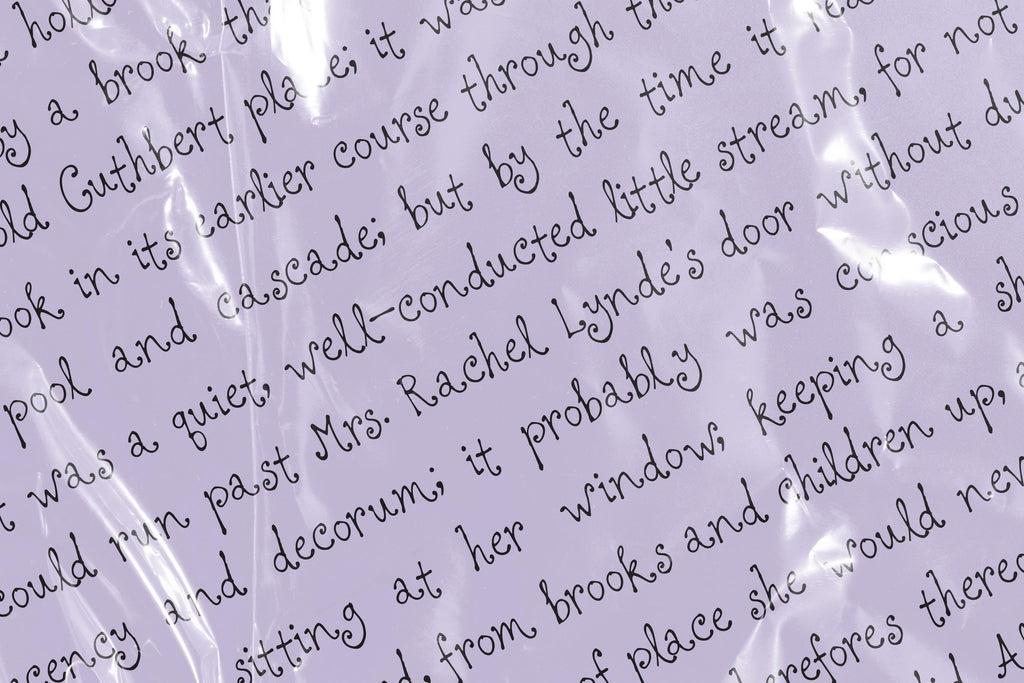 a hollo
by a brook th
old Cuthbert place; it was
ook in its earlier course through th
pool and cascade; but by the time it rea
t was a quiet, well-conducted little stream, for not
could run past Mrs. Rachel Lynde's door without du
cency and decorum; it probably was conscious
sitting at her window, keeping a sh
d, from brooks and children up, a
of place she would nev
herefores thereo